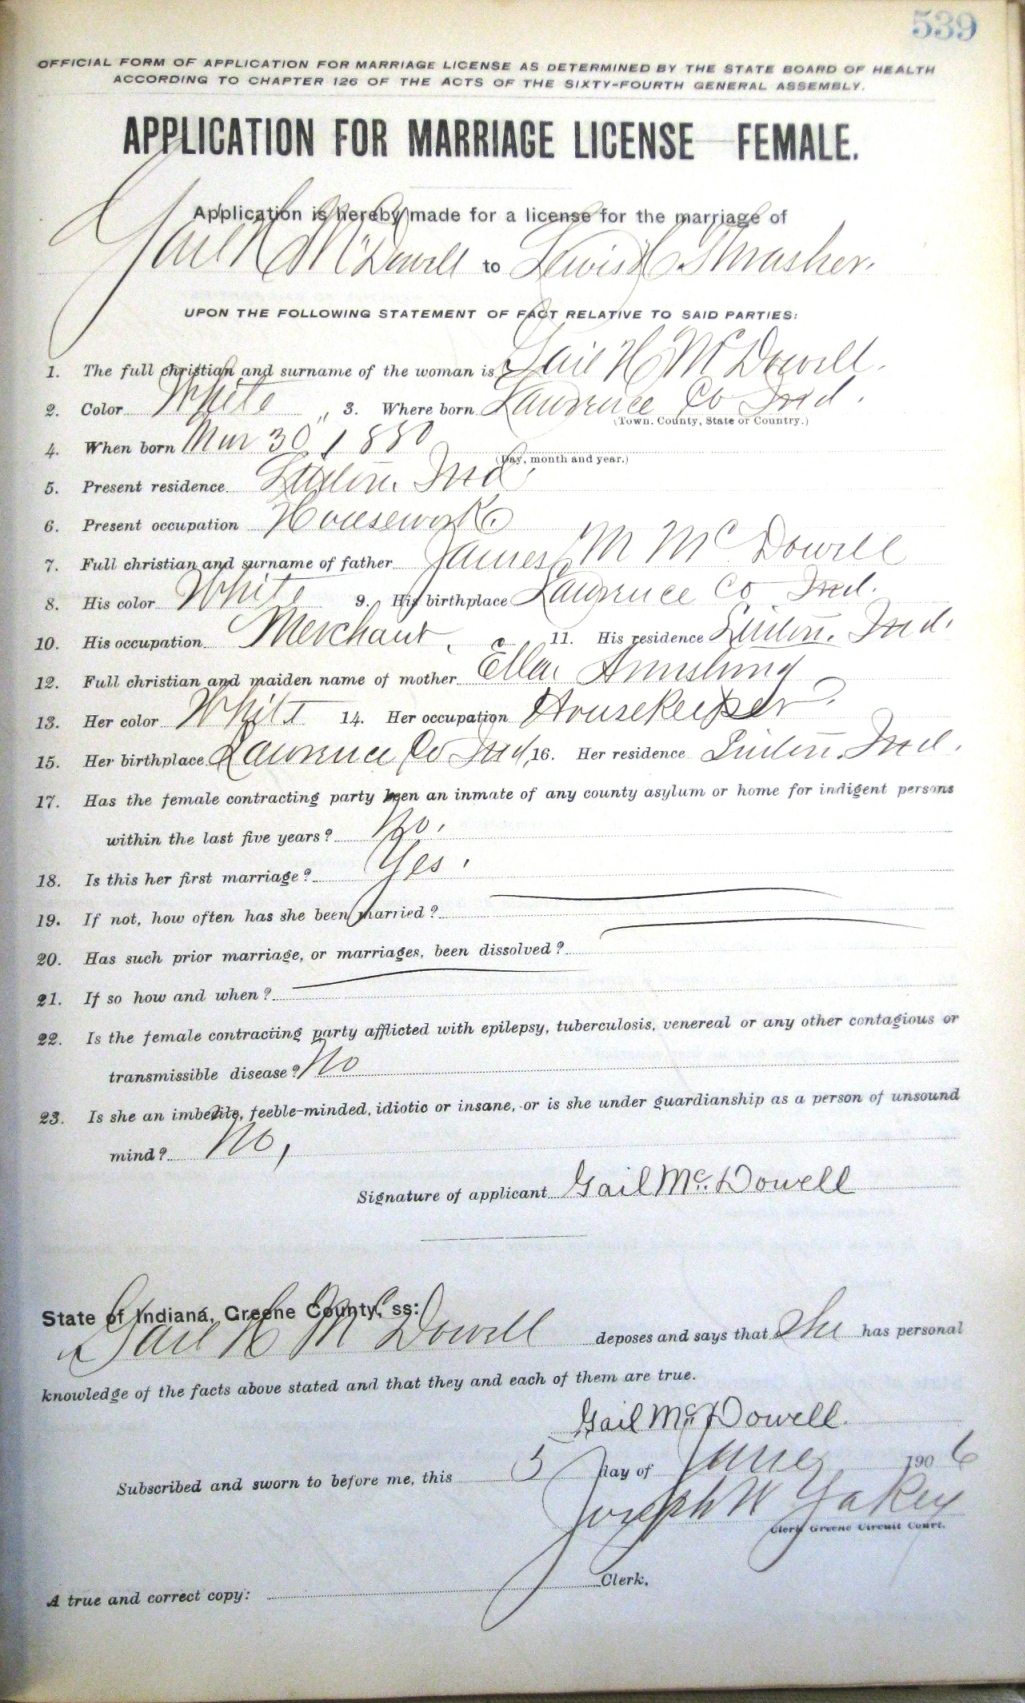 539
OFFICIAL FORM OF APPLICATION FOR MARRIAGE LICENSE AS DETERMINED BY THE STATE BOARD OF HEALTH
ACCORDING TO CHAPTER 126 OF THE ACTS OF THE SIXTY-FOURTH GENERAL ASSEMBLY.
APPLICATION FOR MARRIAGE LICENSE FEMALE.
Application is hereby made for a license for the marriage of
Gail H McDowell to Lewis H. Thrasher.
UPON THE FOLLOWING STATEMENT OF FACT RELATIVE TO SAID PARTIES:
1. The full christian and surname of the woman is Gail H McDowell.
2. Color White 3. Where born Lawrence Co Ind.
(Town. County, State or Country.)
4. When born Mar 30" 1880
(Day, month and year.)
5. Present residence Linton. Ind.
6. Present occupation Housework
7. Full christian and surname of father James M McDowell
8. His color White 9. His birthplace Lawrence Co Ind.
10. His occupation Merchant. 11. His residence Linton. Ind.
12. Full christian and maiden name of mother Ella Armstrong
13. Her color White 14. Her occupation Housekeeper
15. Her birthplace Lawrence Co Ind, 16. Her residence Linton. Ind.
17. Has the female contracting party been an inmate of any county asylum or home for indigent persons
within the last five years? No.
18. Is this her first marriage? Yes.
19. If not, how often has she been married?
20. Has such prior marriage, or marriages, been dissolved?
21. If so how and when?
22. Is the female contracting party afflicted with epilepsy, tuberculosis, venereal or any other contagious or
transmissible disease? No
23. Is she an imbecile, feeble-minded, idiotic or insane, or is she under guardianship as a person of unsound
mind? No,
Signature of applicant Gail Mc.Dowell
State of Indiana, Greene County, ss:
Gail H McDowell deposes and says that She has personal
knowledge of the facts above stated and that they and each of them are true.
Gail McDowell.
Subscribed and sworn to before me, this 5 day of June 1906
Joseph W Yakey
Clerk Greene Circuit Court.
A true and correct copy: Clerk.